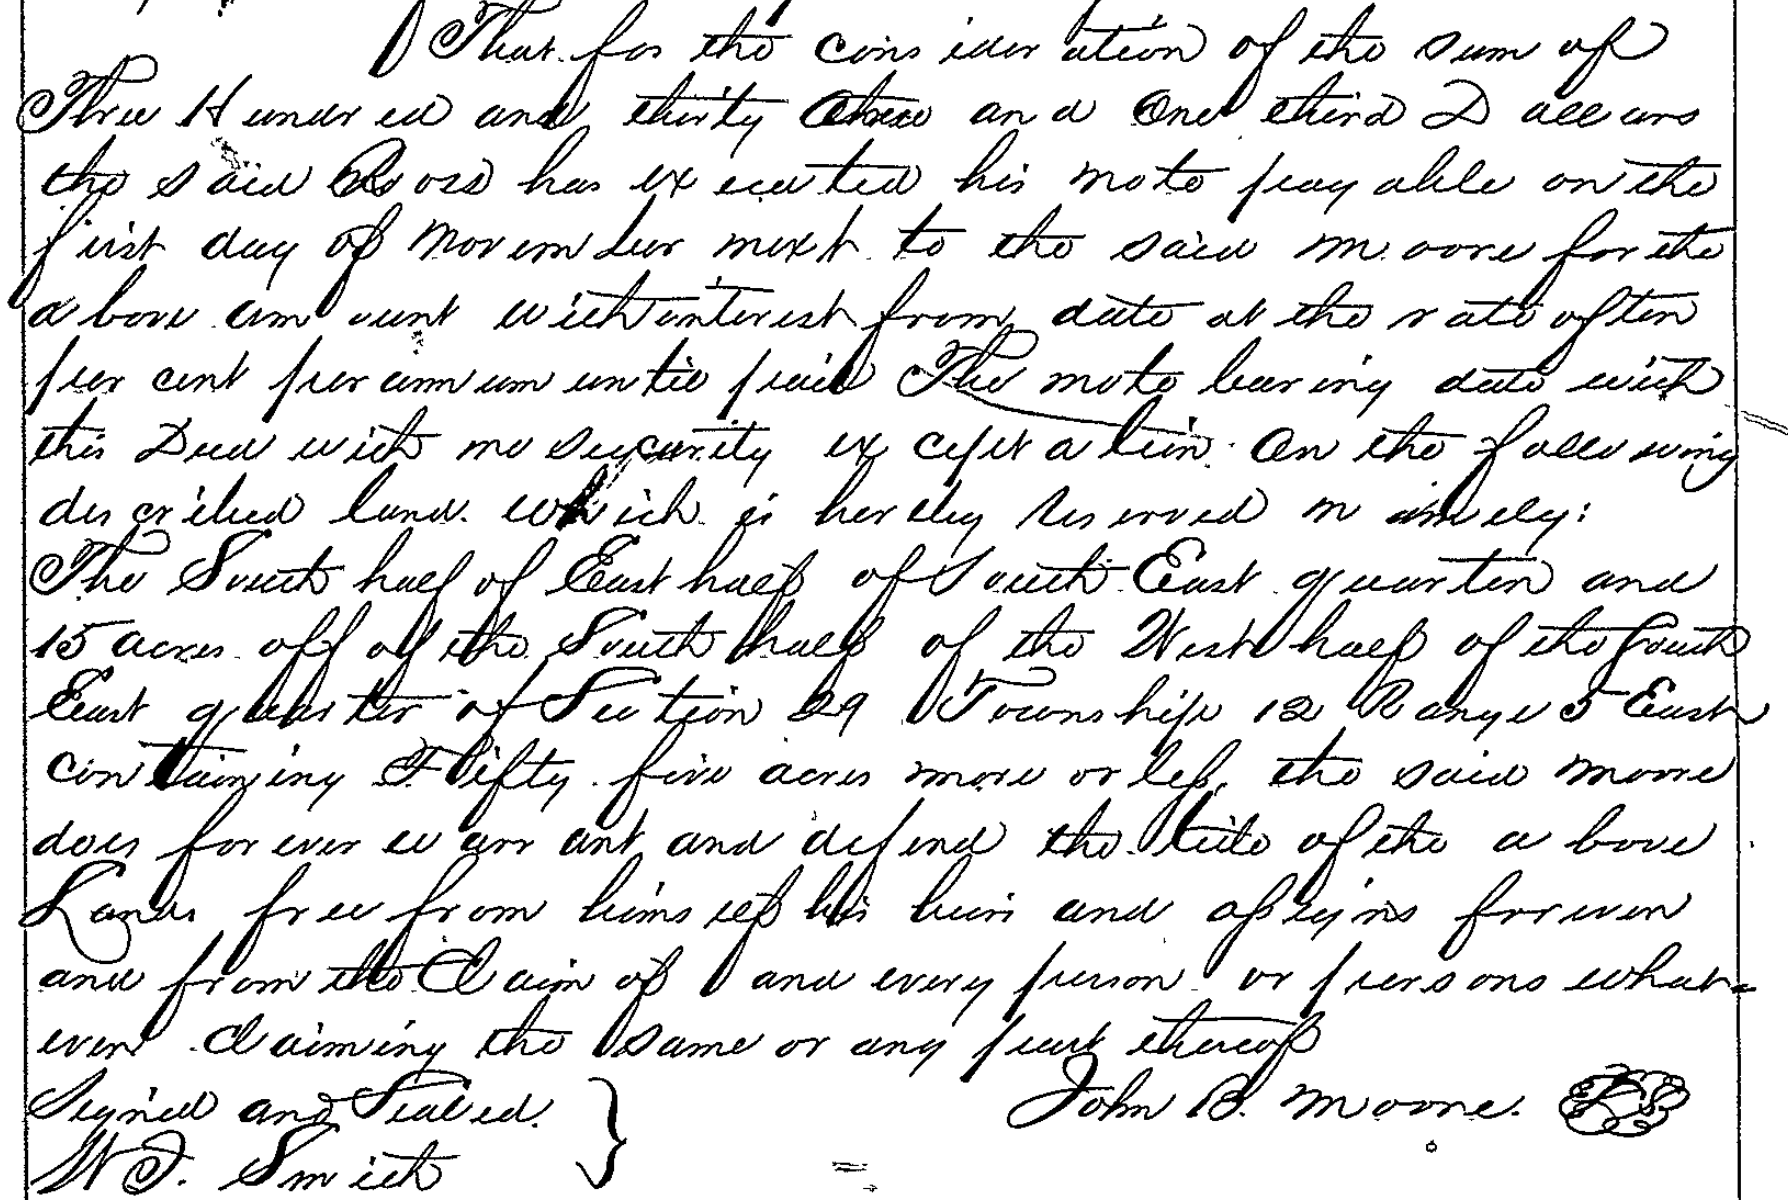 That for the consideration of the sum of
Three Hundred and thirty three and One third Dollars
the said Ross has executed his note payable on the
first day of November next to the said Moore for the
above amount with interest from date at the rate of ten
per cent per annum until paid The note bearing date with
this Deed with no security except a lein on the following
described land which is hereby reserved namely:
The South half of East half of South East quarter and
15 acres off of the South half of the West half of the South
East quarter of Section 29 Township 12 Range 5 East
containing Fifty five acres more or less, the said Moore
does forever warrant and defend the title of the above
Lands free from himself his heirs and assigns forever
and from the Claim of and every person or persons what-
ever Claiming the same or any part thereof
Signed and Sealed. } John B. Moore. LS
Smith